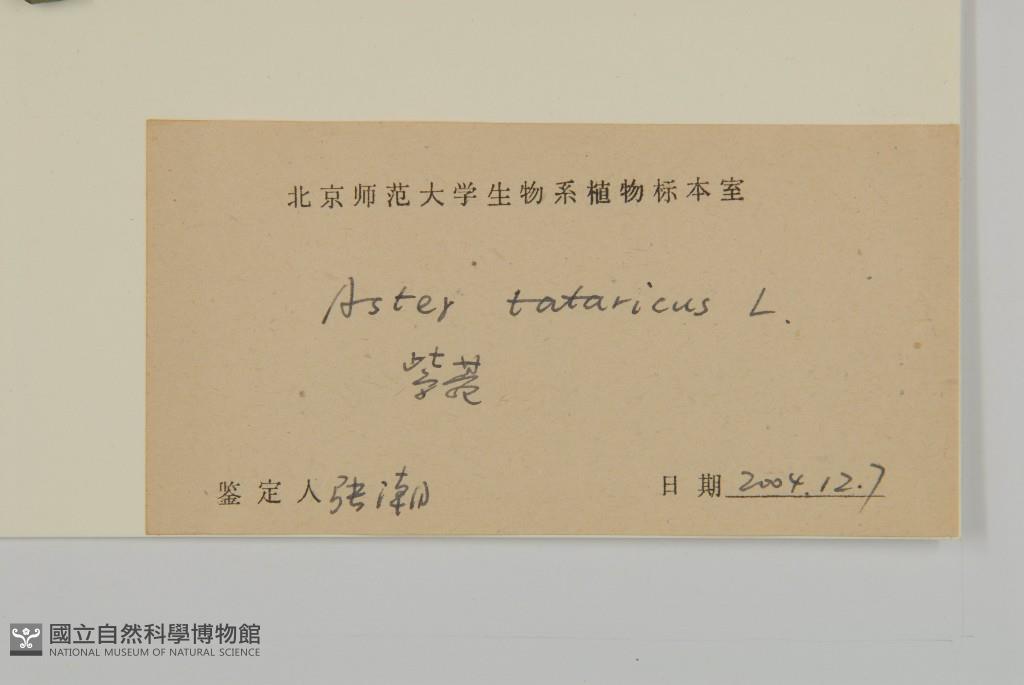 北京师范大学生物系植物标本室
Aster tataricus L.
紫菀
鉴定人 张潮 日期 2004.12.7
國立自然科學博物館
NATIONAL MUSEUM OF NATURAL SCIENCE